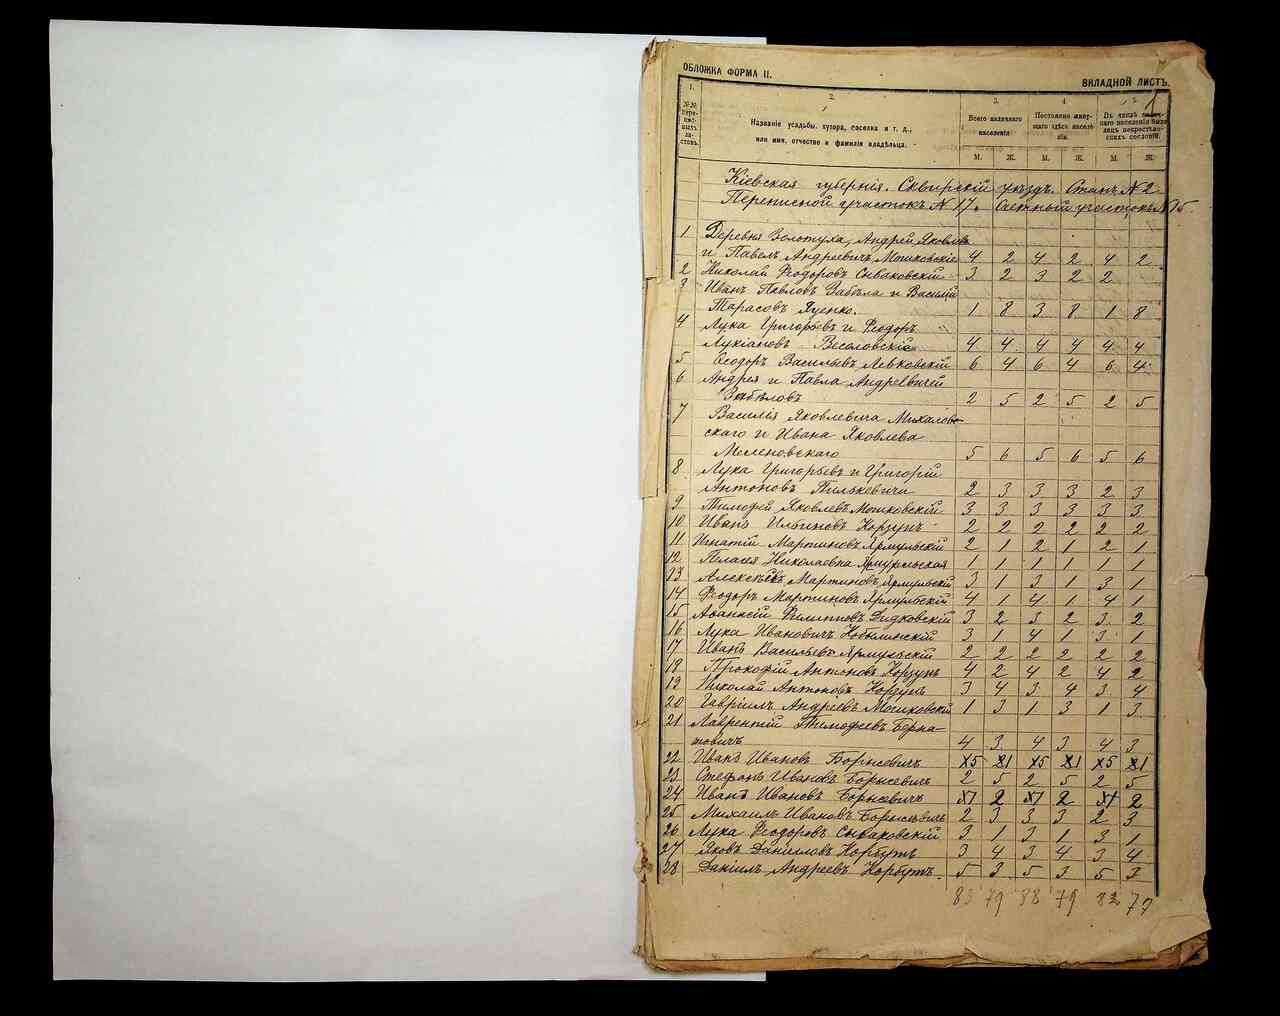 ОБЛОЖКА ФОРМА II.
ВКЛАДНОЙ ЛИСТЪ.
1
1. 2. 3. 4
№№ пере-
пис-
ныхъ
ли-
стовъ.
Названіе усадьбы, хутора, поселка и т. д.,
или имя, отчество и фамилія владѣльца.
Всего наличнаго
населенія
Постоянно живу-
щаго здѣсь населе-
нія.
М. Ж. М. Ж. М. Ж.
Кіевская губернія. Сквирскій уѣздъ. Станъ №2.
Переписной участокъ №17. Счетный участокъ №15.
1 Деревня Золотуха, Андрей Яковлевъ
и Павелъ Андреевичъ Мошковскіе 4 2 4 2 4 2
2 Николай Ѳеодоровъ Сываковскій 3 2 3 2 2
3 Иванъ Павловъ Забѣла и Василій
Тарасовъ Яценко. 1 8 3 8 1 8
4 Лука Григорьевъ и Ѳеодоръ
Лукіановъ Весоловскіе 4 4 4 4 4 4
5 Ѳеодоръ Васильевъ Левковскій 6 4 6 4 6 4
6 Андрея и Павла Андреевичей
Забѣловъ 2 5 2 5 2 5
7 Василія Яковлевича Михалов-
скаго и Ивана Яковлева
Меленовскаго 5 6 5 6 5 6
8 Лука Григорьевъ и Григорій
Антоновъ Пилькевичи 2 3 3 3 2 3
9 Тимофей Яковлевъ Мошковскій 3 3 3 3 3 3
10 Иванъ Корзунъ 2 2 2 2 2 2
11 Игнатій Мартиновъ Ярмульскій 2 1 2 1 2 1
12 Пелагея Николаевна Ярмульская 1 1 1 1 1 1
13 Алексѣй Мартиновъ Ярмульскій 3 1 3 1 3 1
14 Ѳеодоръ Мартиновъ Ярмульскій 4 1 4 1 4 1
15 Аѳанасій Филиповъ Дидковскій 3 2 3 2 3 2
16 Лука Ивановичъ Кобылинскій 3 1 4 1 3 1
17 Иванъ Васильевъ Ярмульскій 2 2 2 2 2 2
18 Прокофій Антоновъ Корзунъ 4 2 4 2 4 2
19 Николай Антоновъ Корзунъ 3 4 3 4 3 4
20 Гавріилъ Андреевъ Мошковскій 1 3 1 3 1 3
21 Лаврентій Тимофеевъ Берна-
товичъ 4 3 4 3 4 3
22 Иванъ Ивановъ Борисевичъ 5 1 5 1 5 1
23 Стефанъ Ивановъ Борисевичъ 2 5 2 5 2 5
24 Иванъ Ивановъ Борисевичъ 1 2 1 2 1 2
25 Михаилъ Ивановъ Борисевичъ 2 3 3 3 2 3
26 Лука Ѳеодоровъ Сываковскій 3 1 3 1 3 1
27 Яковъ Даниловъ Корбутъ 3 4 3 4 3 4
28 Даніилъ Андреевъ Корбутъ. 5 3 5 3 5 3
83 79 88 79 82 79